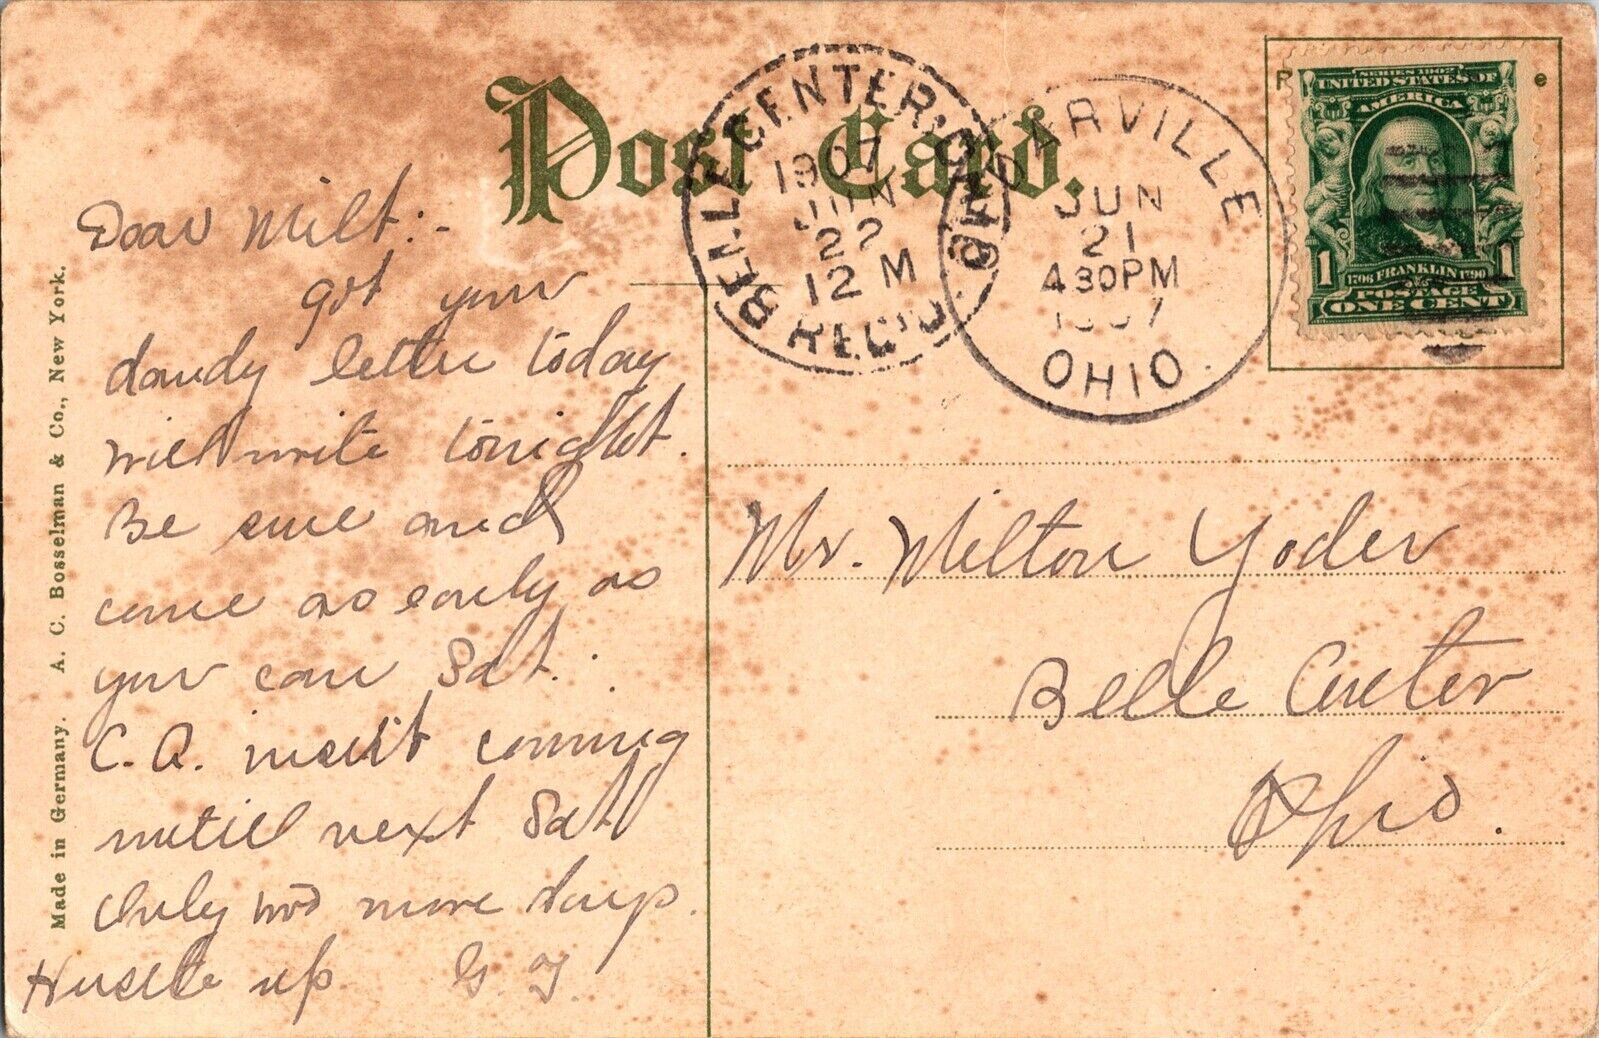 Post Card.
BELLE CENTER, OHIO
1907
JUN
22
12 M
REC'D.
DARVILLE
JUN
21
430PM
1907
OHIO.
SERIES 1902
UNITED STATES OF
AMERICA
1706 FRANKLIN 1790
1 1
POSTAGE
ONE CENT
P e
Dear Milt:-
Got your
dandy letter today
will write tonight.
Be sure and
come as early as
you can Sat.
C. A. isn't coming
until next Sat
Only two more days.
Hustle up. G. Y.
Mr. Milton Yoder
Belle Center
Ohio.
Made in Germany. A. C. Bosselman & Co., New York.